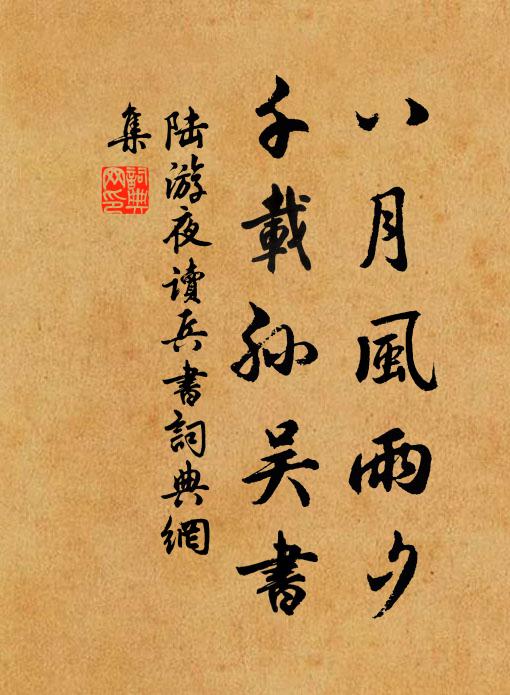 八月風雨夕
千載孫吳書
陸游夜讀兵書詞典網
集
詞典網印